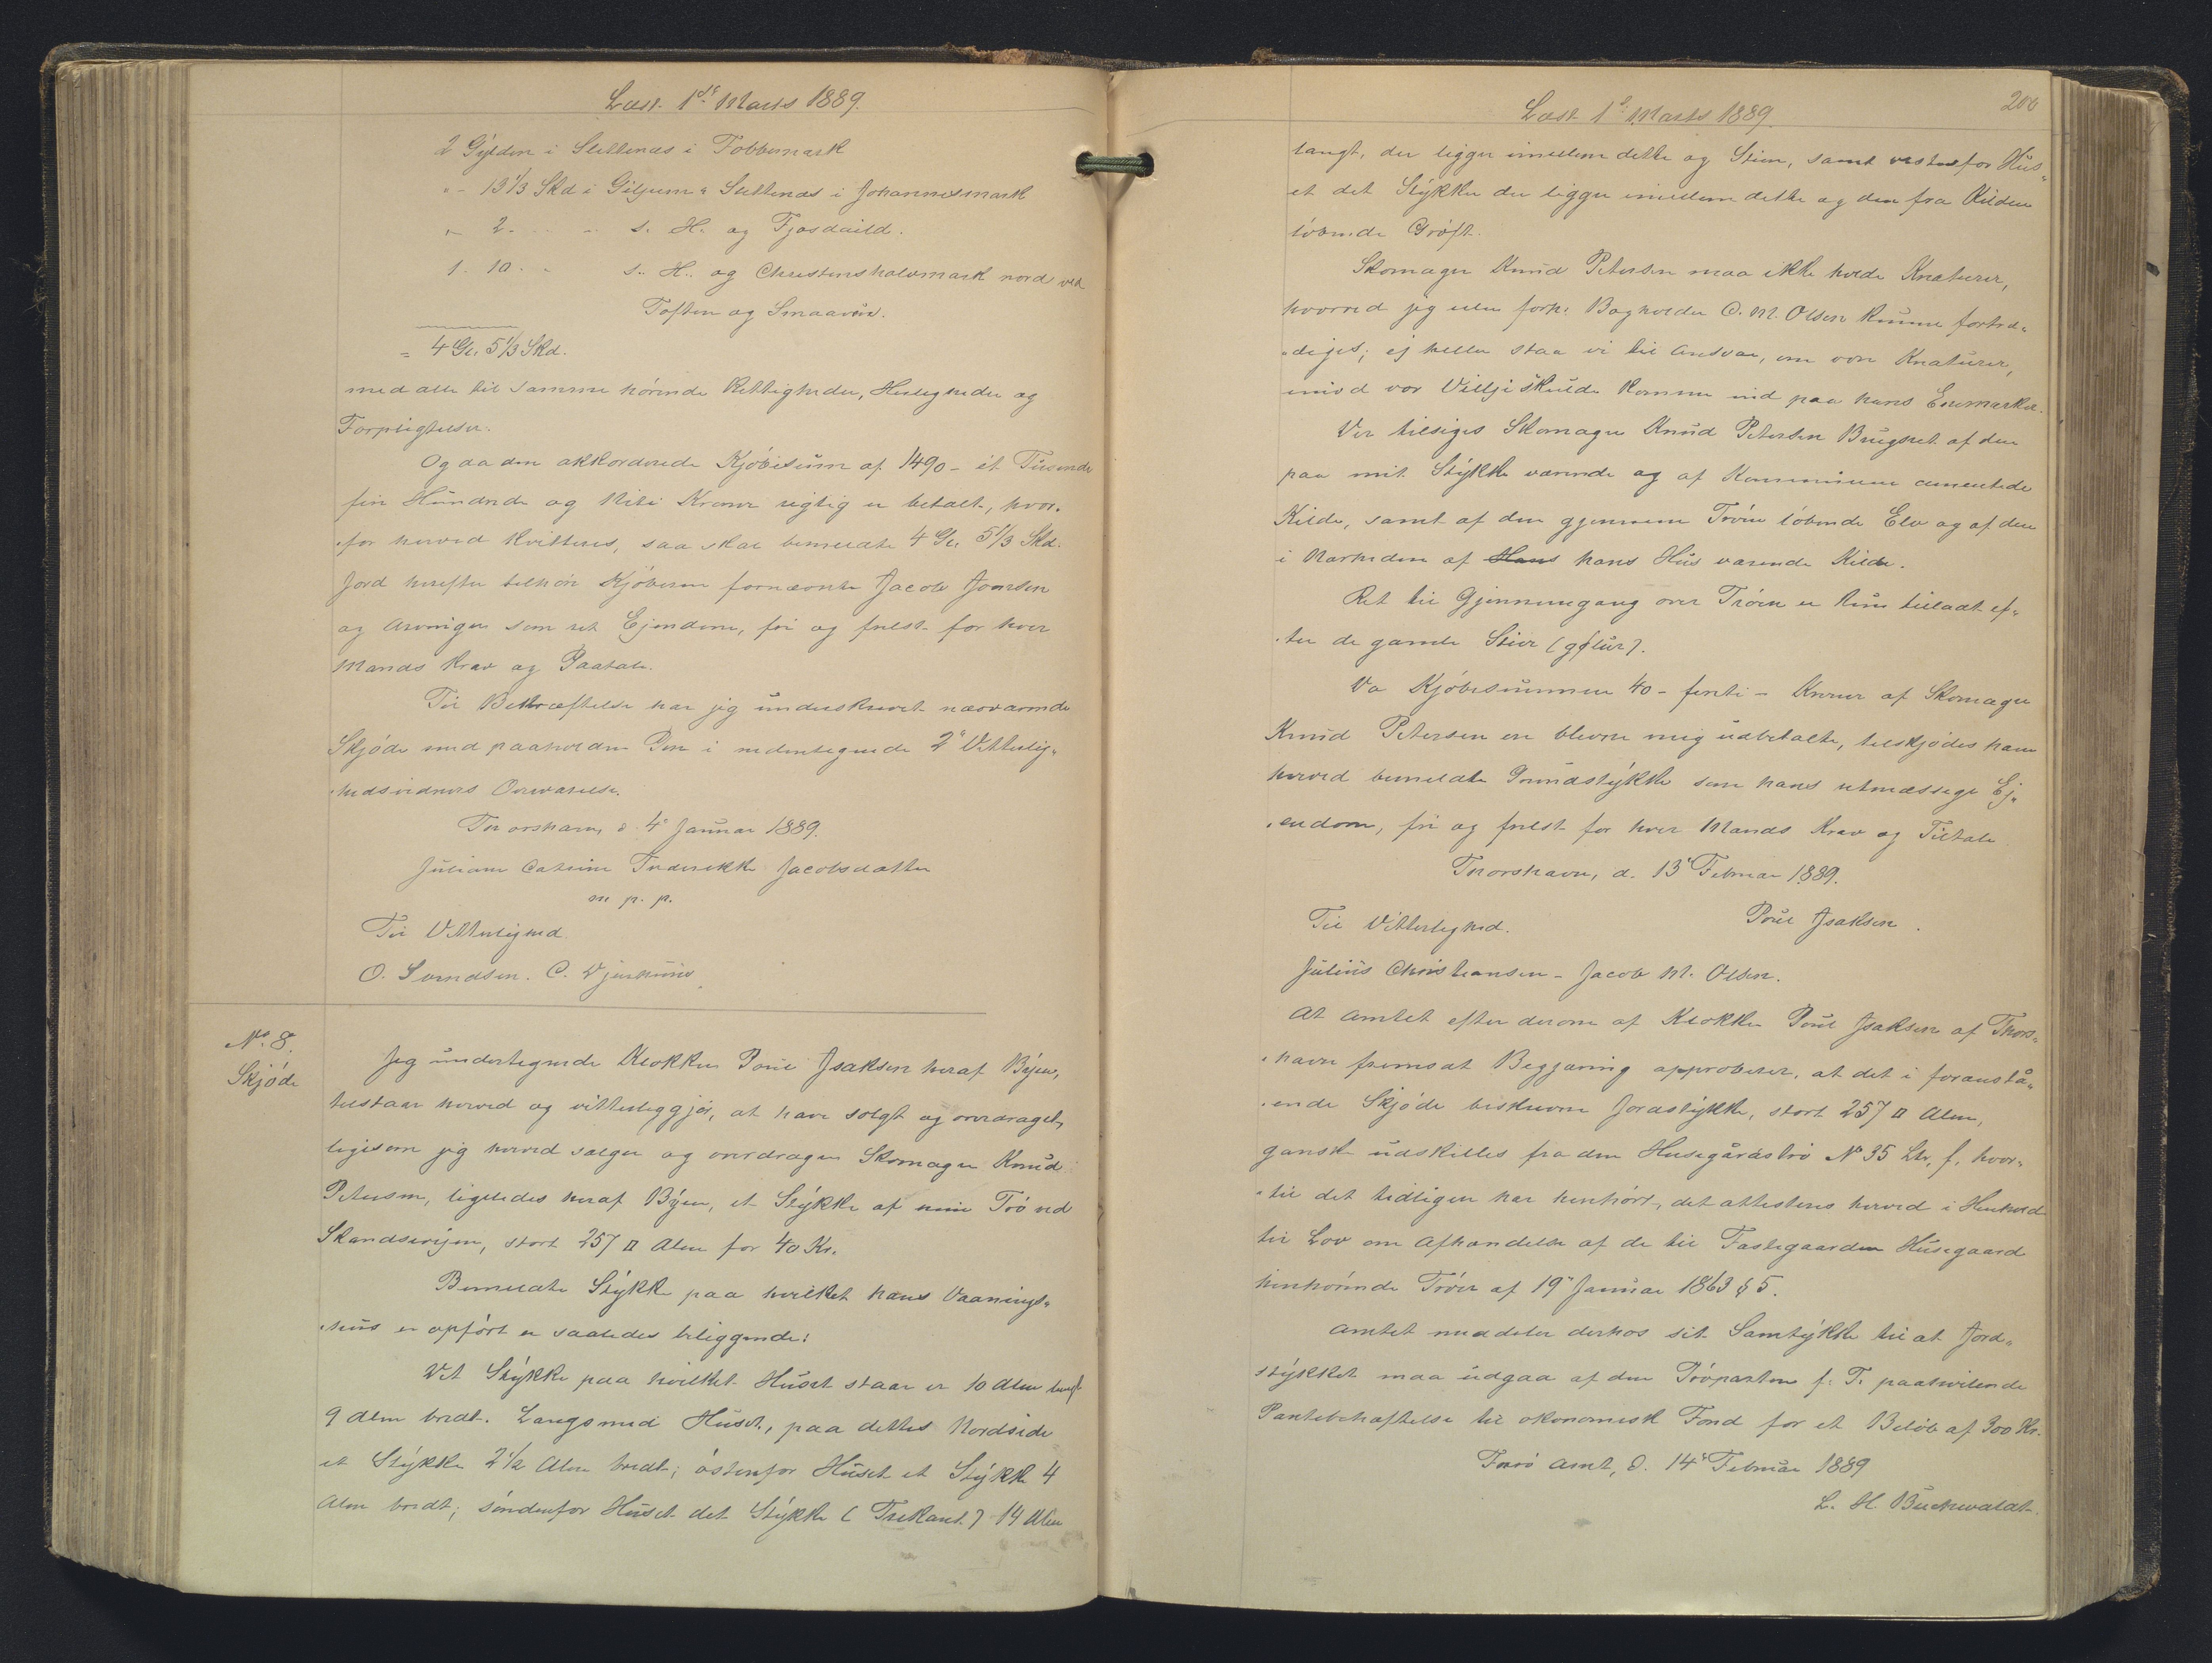 Læst 1ste Marts 1889.
2 Gylden i Slettenæs i Tobbemark
" - 13 1/3 Skd i Giljum & Slettenæs i Johannesmark
" 2. - - s. H. og Tjosdaild.
1. 10. - s. H. og Christenshalvmark nord ved
Toften og Smaa
= 4 Gl. 5 1/3 Skd.
med alle til samme hörende Rettigheder, Herligheder og
Forpligtelser.
Og da den akkorderede Kjöbesum af 1490 - ét Tusende
fire Hundrede og Niti Kroner rigtig er betalt, hvor-
-for herved kvitteres, saa skal bemeldte 4 Gl. 5 1/3 Skd.
Jord herefter tilhöre Kjöberen fornævnte Jacob Joensen
og Arvinger som ret Ejendom, fri og frelst for hver
Mands Krav og Paatale.
Til Bekræftelse har jeg underskrevet nærværende
Skjöde med paaholden Pen i nedentegnede 2de Vitterlig-
-hedsvidners Overværelse.
Thorshavn, d. 4e Januar 1889.
Juliane Catrine Frederikke Jacobsdatter
m. p. p.
Til Vitterlighed
O. Svendsen. C. Djurhuus
No 8.
Skjöde
Jeg undertegnede Klokker Poul Isaksen heraf Byen,
tilstaar herved og vitterliggjör, at have solgt og overdraget,
ligesom jeg herved sælger og overdrager Skomager Knud
Petersen, ligeledes heraf Byen, et Stykke af min Trö ved
Skandsevejen, stort 257 □ Alen for 40 Kr.
Bemeldte Stykke paa hvilket hans Vaanings-
-hus er opfört er saaledes beliggende:
Det Stykke paa hvilket Huset staar er 10 Alen langt
9 Alen bredt. Langs med Huset, paa dettes Nordside
et Stykke 2 1/2 Alen bredt; östenfor Huset et Stykke 4
Alen bredt; söndenfor Huset det Stykke (Trekant) 14 Alen
Læst 1e Marts 1889.
200
langt, der ligger imellem dette og Stien, samt vestenfor Hus-
et det Stykke der ligger imellem dette og den fra Kilden
löbende Gröft.
Skomager Knud Petersen maa ikke holde Kreaturer,
hvorved jeg eller forh. Bogholder C. M. Olsen kunne fortræ-
-diges; ej heller staa vi til Ansvar, om vore Kreaturer,
imod vor Villje skulde komme ind paa hans Enemærker.
Der tilsiges Skomager Knud Petersen Brugsret af den
paa mit Stykke værende og af Kommunen cementede
Kilde, samt af den gjennem Tröen löbende Elv og af den
i Nærheden af Hans hans Hus værende Kilde.
Ret til Gjennemgang over Tröen er kun tilladt ef-
-ter de gamle Stier (gøtur).
Da Kjöbesummen 40 - fireti - Kroner af Skomager
Knud Petersen ere blevne mig udbetalte, tilskjödes ham
herved bemeldte Grundstykke som hans retmæssige Ej-
-endom, fri og frelst for hver Mands Krav og Tiltale
Thorshavn, d. 13e Februar 1889.
Poul Isaksen.
Til Vitterlighed.
Julius Christiansen - Jacob M. Olsen.
At Amtet efter derom af Klokker Poul Isaksen af Thors-
-havn fremsat Begjæring approberer, at det i foranstå-
-ende Skjöde beskrevne Jordstykke, stort 257 □ Alen,
ganske udskilles fra den Husegårdströ No 35 Ltr. f, hvor-
-til det tidligere har henhört, det attesteres herved i Henhold
til Lov om Afhændelse af de til Fæstegaarden Husegaard
henhörende Tröer af 19e Januar 1863 § 5.
Amtet meddeler derhos sit Samtykke til at Jord-
stykket maa udgaa af den Tröparten f. T. paahvilende
Pantebehæftelse til ökonomisk Fond for et Belöb af 300 Kr.
Færö Amt, d. 14e Februar 1889
L. H. Buchwaldt.